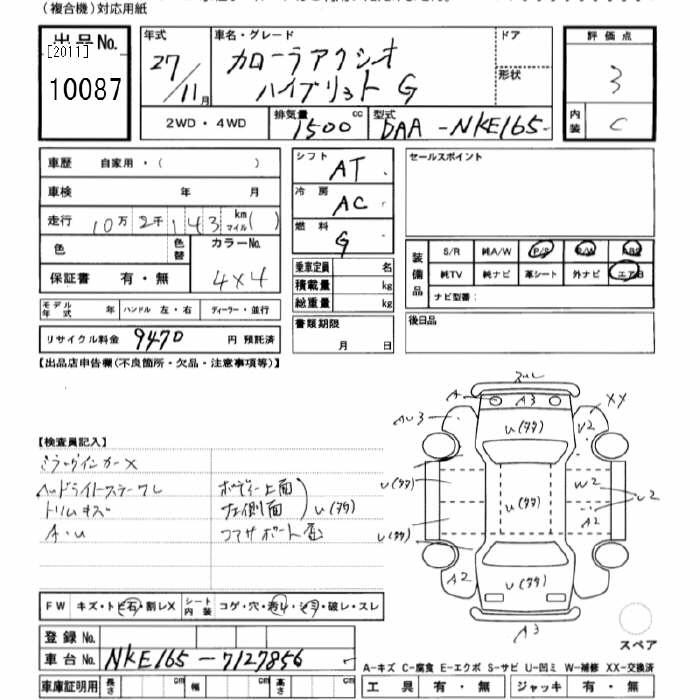 (複合機)対応用紙
出品No.
[2011]
10087
年式
27/11月
車名・グレード
カローラアクシオ
ハイブリット G
ドア
形状
評価点
3
内装
C
2WD・4WD
排気量
1500 cc
型式
DAA-NKE165-
車歴 自家用・( )
車検 年 月
走行 10万2千143 km マイル( )
色
色替
カラーNo.
4X4
保証書 有・無
モデル年式 年 ハンドル 左・右 ディーラー・並行
リサイクル料金 9470 円 預託済
シフト AT
冷房 AC
燃料 G
乗車定員 名
積載量 kg
総重量 kg
書類期限
月 日
セールスポイント
装備品
S/R 純A/W P/S P/W ABS
純TV 純ナビ 革シート 外ナビ エアB
ナビ型番:
後日品
【出品店申告欄(不良箇所・欠品・注意事項等)】
【検査員記入】
ミラーウインカーX
ヘッドライトステーワレ
トリムキズ
A・U
ボディー上面
左側面
U(タタ)
コアサポート
A
A3
XX
AU3
U(タタ)
U2
U(タタ)
U(タタ)
U(タタ)
W2
U2
A2
A2
U(タタ)
A3
スペア
FW キズ・トビ石・割レX
シート内装 コゲ・穴・汚レ・シミ・破レ・スレ
登録No.
車台No. NKE165-7127856
車庫証明用 長さ cm 幅 cm 高さ cm
A-キズ C-腐食 E-エクボ S-サビ U-凹ミ W-補修 XX-交換済
工具 有・無 ジャッキ 有・無